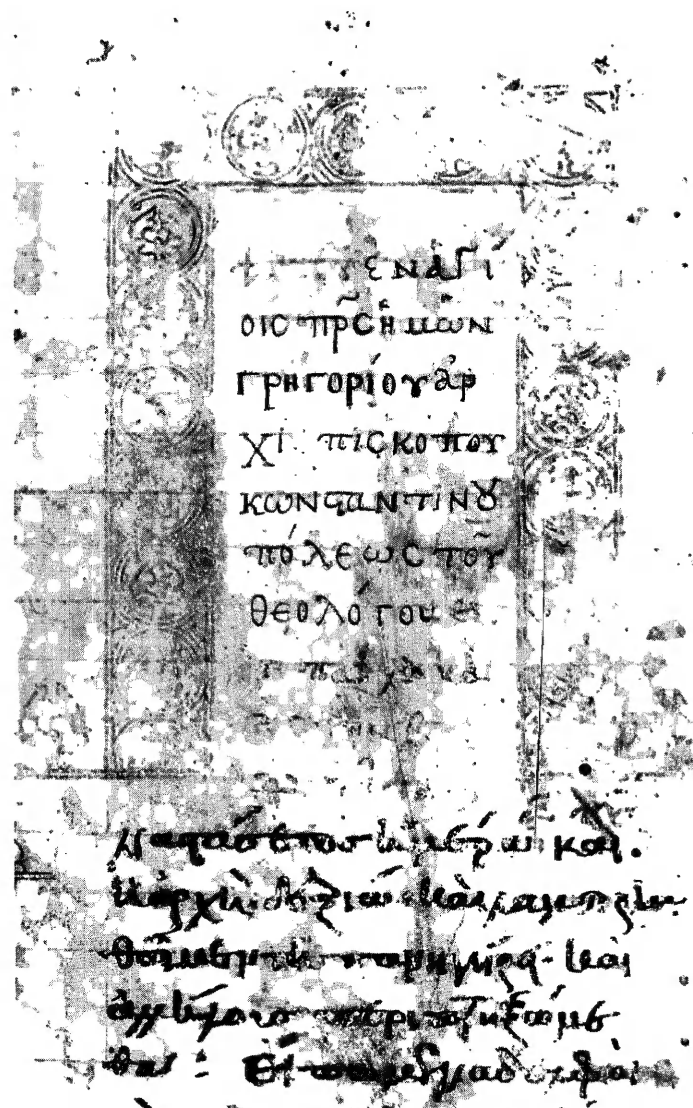 ἐν ἁγί
οις πρς ἡμῶν
γρηγορίου ἀρ
χι πισκοπου
κωνσταντινου
πόλεως τοῦ
θεολόγου ε
πασχα
Ἀναστάσεως ἡμέρα καὶ
ἡ ἀρχὴ δεξιὰ καὶ λαμπρυν
θῶμεν τῇ πανηγύρει καὶ
ἀλλήλους περιπτυξώμε
θα : Εἴπωμεν ἀδελφοὶ